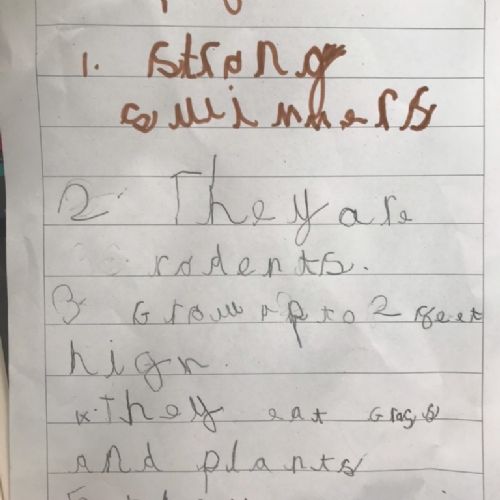 1. strong
swimmers
2 They are
rodents.
3 Grow up to 2 feet
high.
4. They eat Grass
and plants